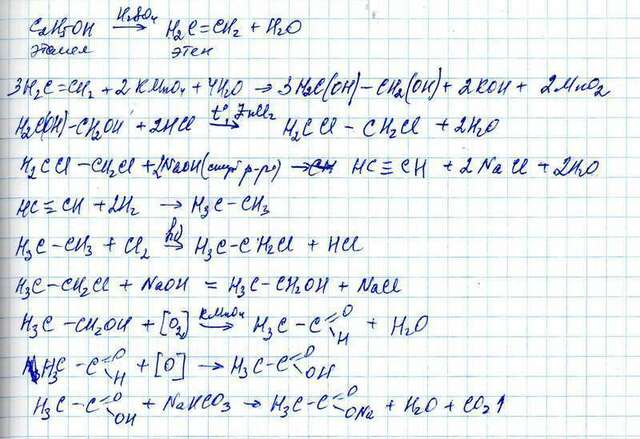 C₂H₅OH —H₂SO₄→ H₂C=CH₂ + H₂O
этанол этен
3H₂C=CH₂ + 2KMnO₄ + 4H₂O → 3H₂C(OH)-CH₂(OH) + 2KOH + 2MnO₂
H₂C(OH)-CH₂OH + 2HCl —t°, ZnCl₂→ H₂CCl-CH₂Cl + 2H₂O
H₂CCl-CH₂Cl + 2NaOH (спирт р-р) → HC≡CH + 2NaCl + 2H₂O
HC≡CH + 2H₂ → H₃C-CH₃
H₃C-CH₃ + Cl₂ —hν→ H₃C-CH₂Cl + HCl
H₃C-CH₂Cl + NaOH = H₃C-CH₂OH + NaCl
H₃C-CH₂OH + [O₂] —KMnO₄→ H₃C-C=O H + H₂O
H₃C-C=O H + [O] → H₃C-C=O OH
H₃C-C=O OH + NaHCO₃ → H₃C-C=O ONa + H₂O + CO₂↑